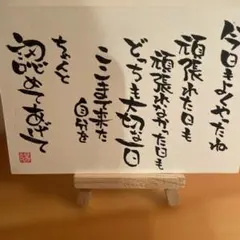 今日もよくやったね
頑張れた日も
頑張れなかった日も
どちらも大切な一日
ここまで来た
自分を
ちゃんと
認めてあげて